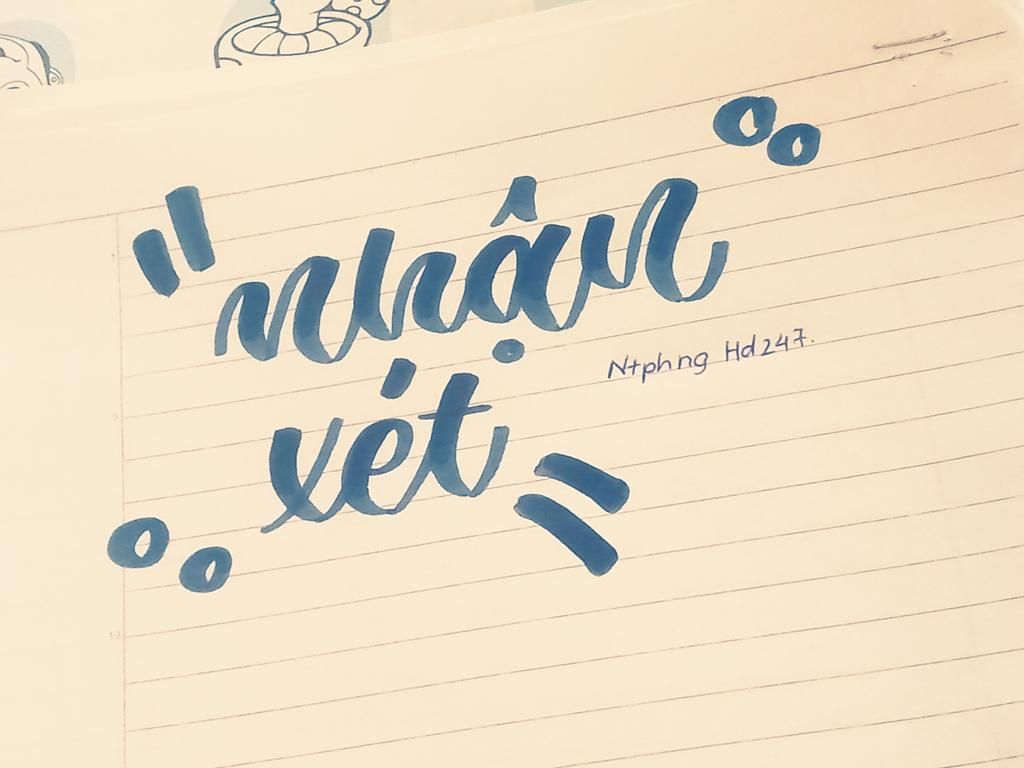 nhận
xét
Ntphng Hd247.